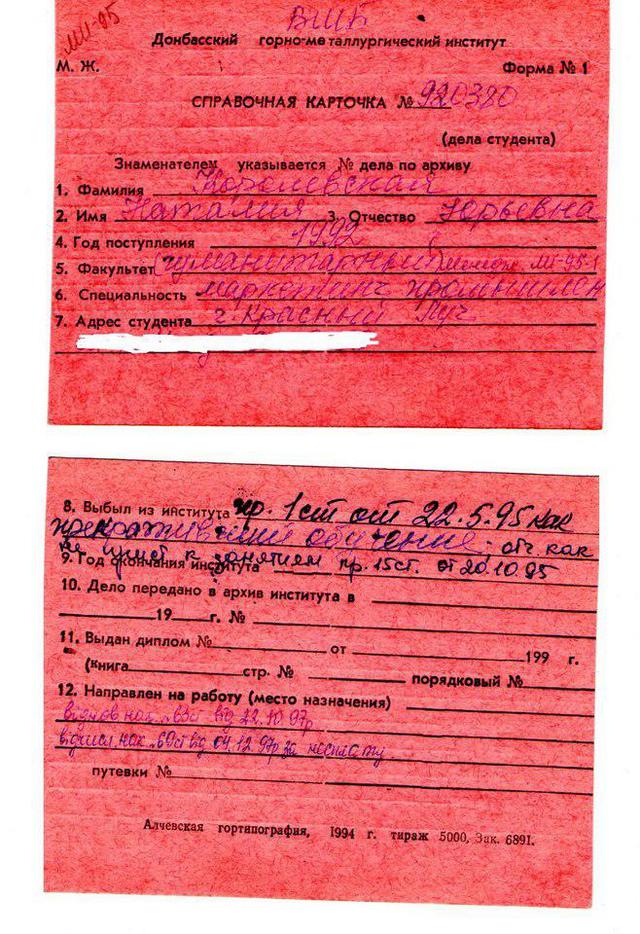 МП-95 ВШБ
Донбасский горно-металлургический институт
М. Ж. Форма № 1
СПРАВОЧНАЯ КАРТОЧКА № 920380
(дела студента)
Знаменателем указывается № дела по архиву
1. Фамилия Королевская
2. Имя Наталия 3. Отчество Юрьевна
4. Год поступления 1992
5. Факультет (гуманитарный) МП-95-1
6. Специальность маркетинг промышлен
7. Адрес студента г. Красный Луч
8. Выбыл из института пр. 1ст от 22.5.95 как
прекратившая обучение; отч как
не прист к занятиям пр. 15ст. от 20.10.95
9. Год окончания института
10. Дело передано в архив института в
19 г. №
11. Выдан диплом № от 199 г.
(книга стр. № порядковый №
12. Направлен на работу (место назначения)
від 22.10.97р
відчисл. нак. 60ст від 04.12.97р за несплату
путевки №
Алчевская гортипография, 1994 г. тираж 5000, Зак. 6891.